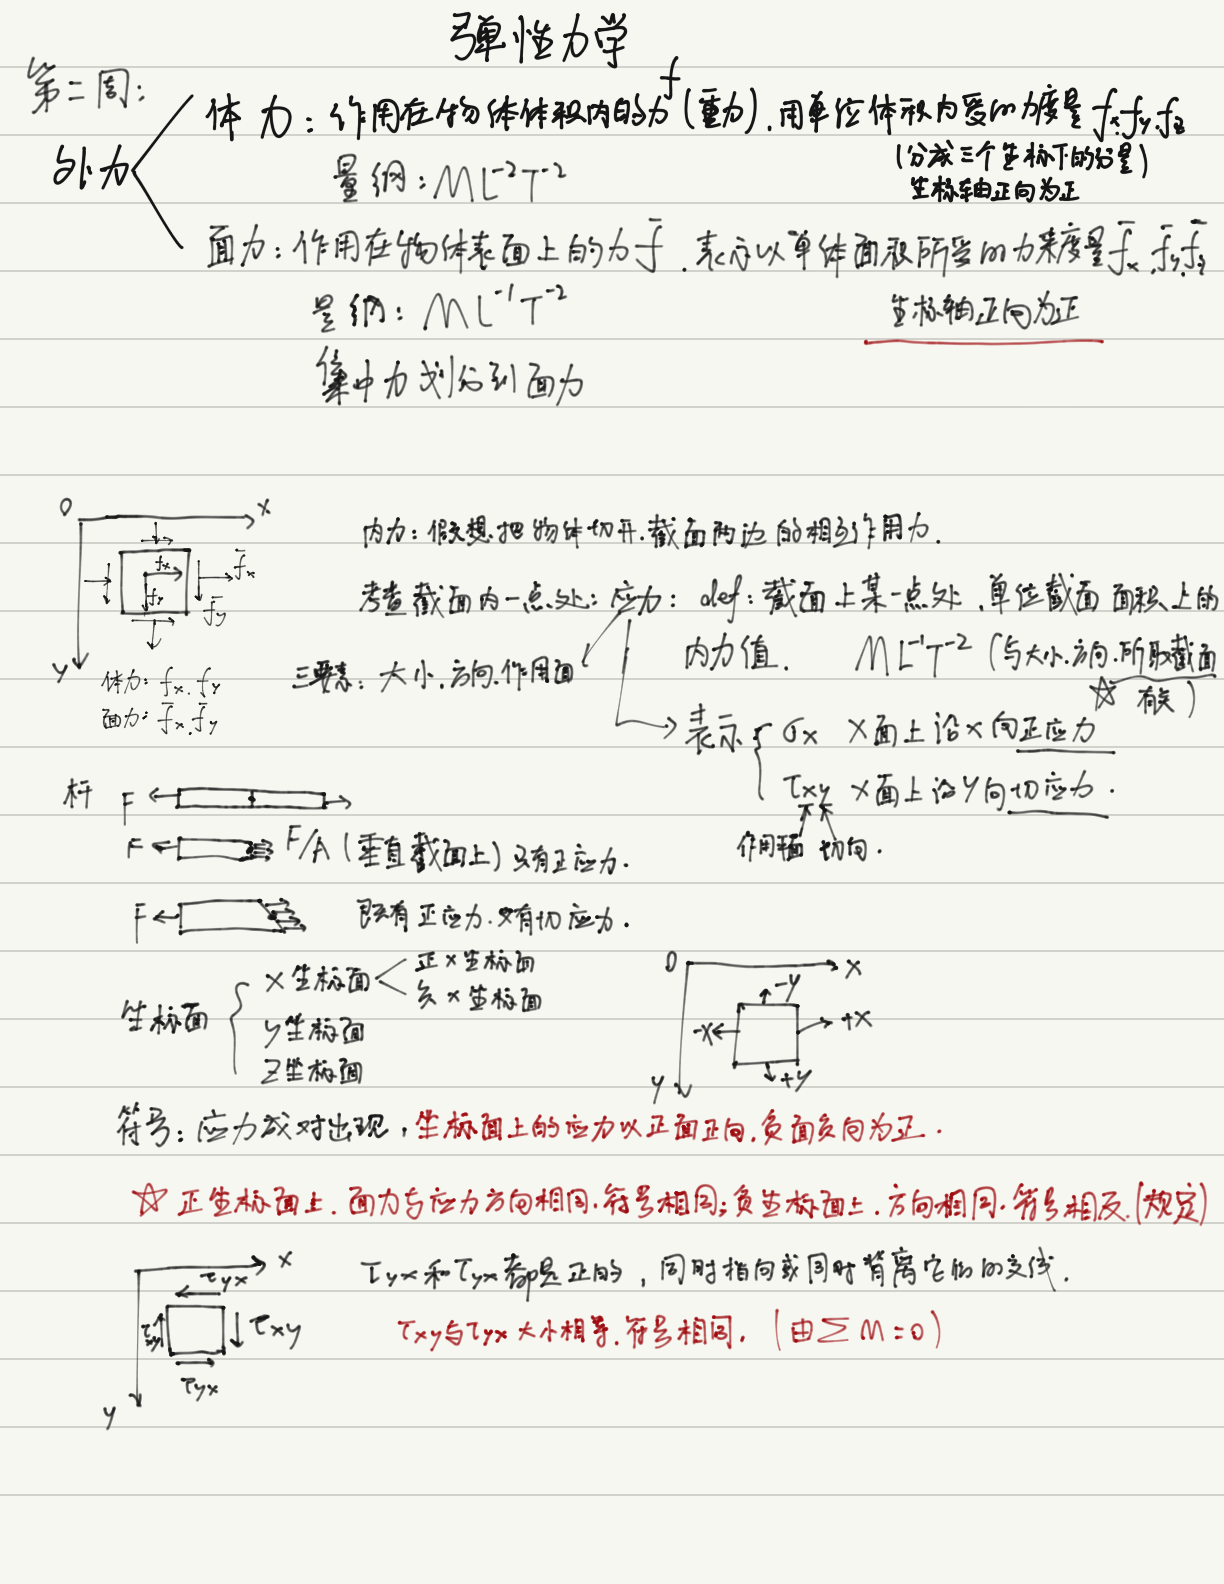 弹性力学
第二周:
外力
体力：作用在物体体积内的力f(重力).用单位体积内受的力度量 fx.fy.fz
(分成三个坐标下的分量)
坐标轴正向为正
量纲：ML⁻²T⁻²
面力：作用在物体表面上的力f̄. 表示以单体面积所受的力来度量f̄x.f̄y.f̄z
量纲：ML⁻¹T⁻²
坐标轴正向为正
集中力划分到面力
O x
fx f̄x
fy f̄y
y
体力：fx.fy
面力：f̄x.f̄y
内力：假想把物体切开.截面两边的相互作用力.
考查截面内一点处：应力：def：截面上某一点处.单位截面面积上的
内力值. ML⁻¹T⁻² (与大小.方向.所取截面
☆ 有关)
三要素：大小.方向.作用面
表示 { σx x面上沿x向正应力
τxy x面上沿y向切应力.
作用平面 切向.
杆 F
F F/A (垂直截面上) 只有正应力.
F 既有正应力.又有切应力.
坐标面 { x坐标面 < 正x坐标面
负x坐标面
y坐标面
z坐标面
O x
-y
-x +x
+y
y
符号：应力成对出现，坐标面上的应力以正面正向.负面负向为正.
☆ 正坐标面上.面力与应力方向相同.符号相同；负坐标面上.方向相同.符号相反.(规定)
x
τyx
τxy τxy
τyx
y
τyx和τyx都是正的，同时指向或同时背离它们的交线.
τxy与τyx大小相等.符号相同. (由ΣM=0)